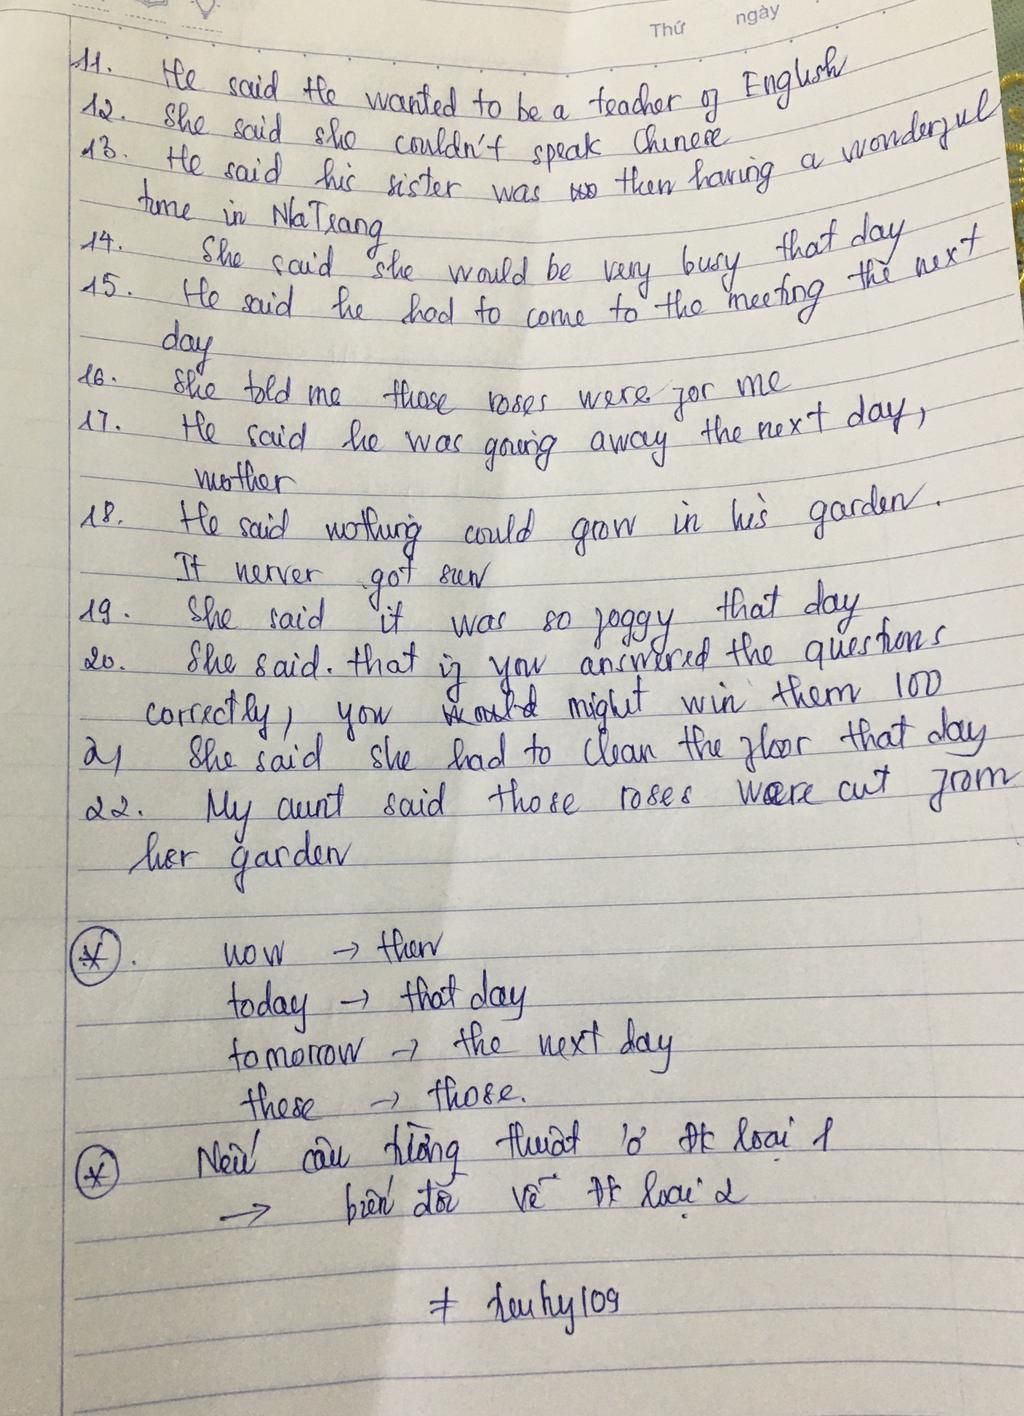 Thứ ngày
11. He said He wanted to be a teacher of English
12. She said she couldn't speak Chinese
13. He said his sister was then having a wonderful
time in NhaTrang
14. She said she would be very busy that day
15. He said he had to come to the meeting the next
day
16. She told me those roses were for me
17. He said he was going away the next day,
mother
18. He said nothing could grow in his garden.
It nerver got sun
19. She said it was so foggy that day
20. She said. that if you answered the questions
correctly, you would might win them 100
21 She said she had to clean the floor that day
22. My aunt said those roses were cut from
her garden
*. now → then
today → that day
tomorrow → the next day
these → those.
* Nếu câu tường thuật ở ĐK loại 1
→ biến đổi về ĐK loại 2